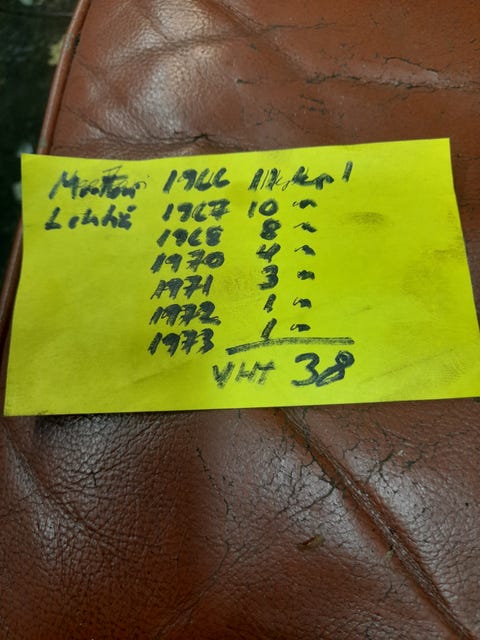 Moottori 1966 11 kpl
Lehtiä 1967 10 "
1968 8 "
1970 4 "
1971 3 "
1972 1 "
1973 1 "
YHT 38